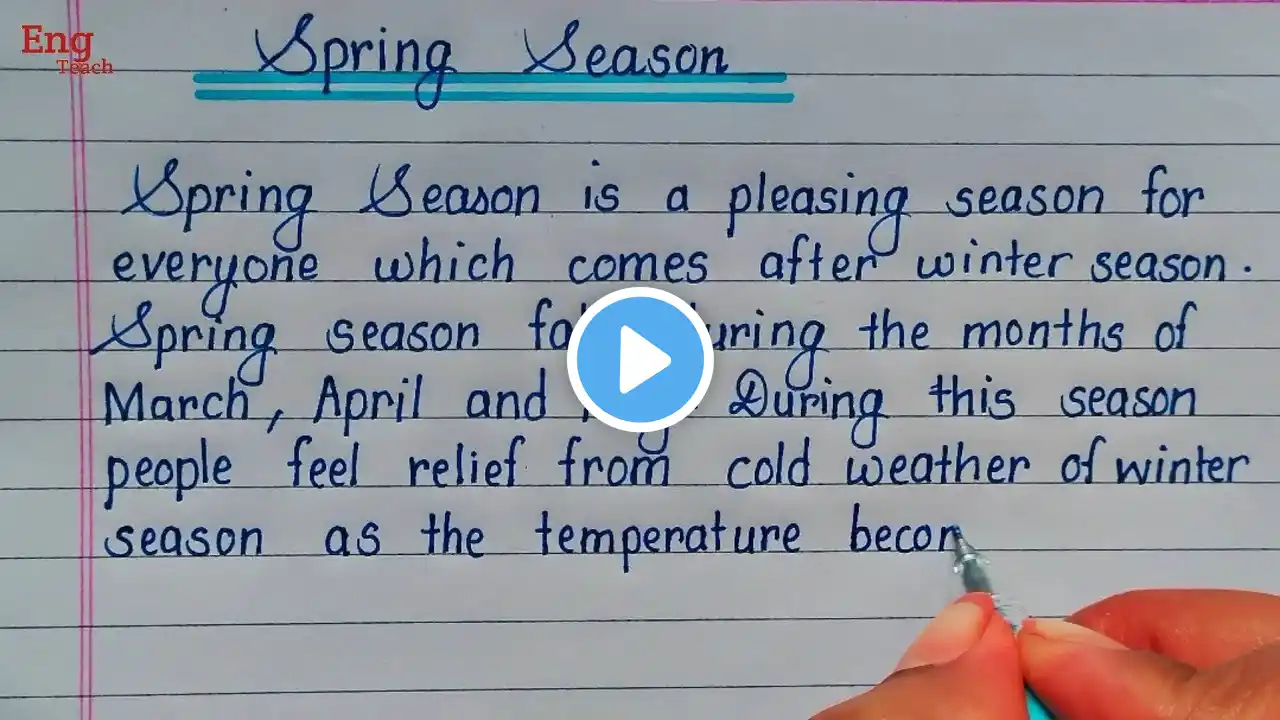 Eng
Teach
Spring Season
Spring Season is a pleasing season for
everyone which comes after winter season.
Spring season during the months of
March, April and During this season
people feel relief from cold weather of winter
season as the temperature becom